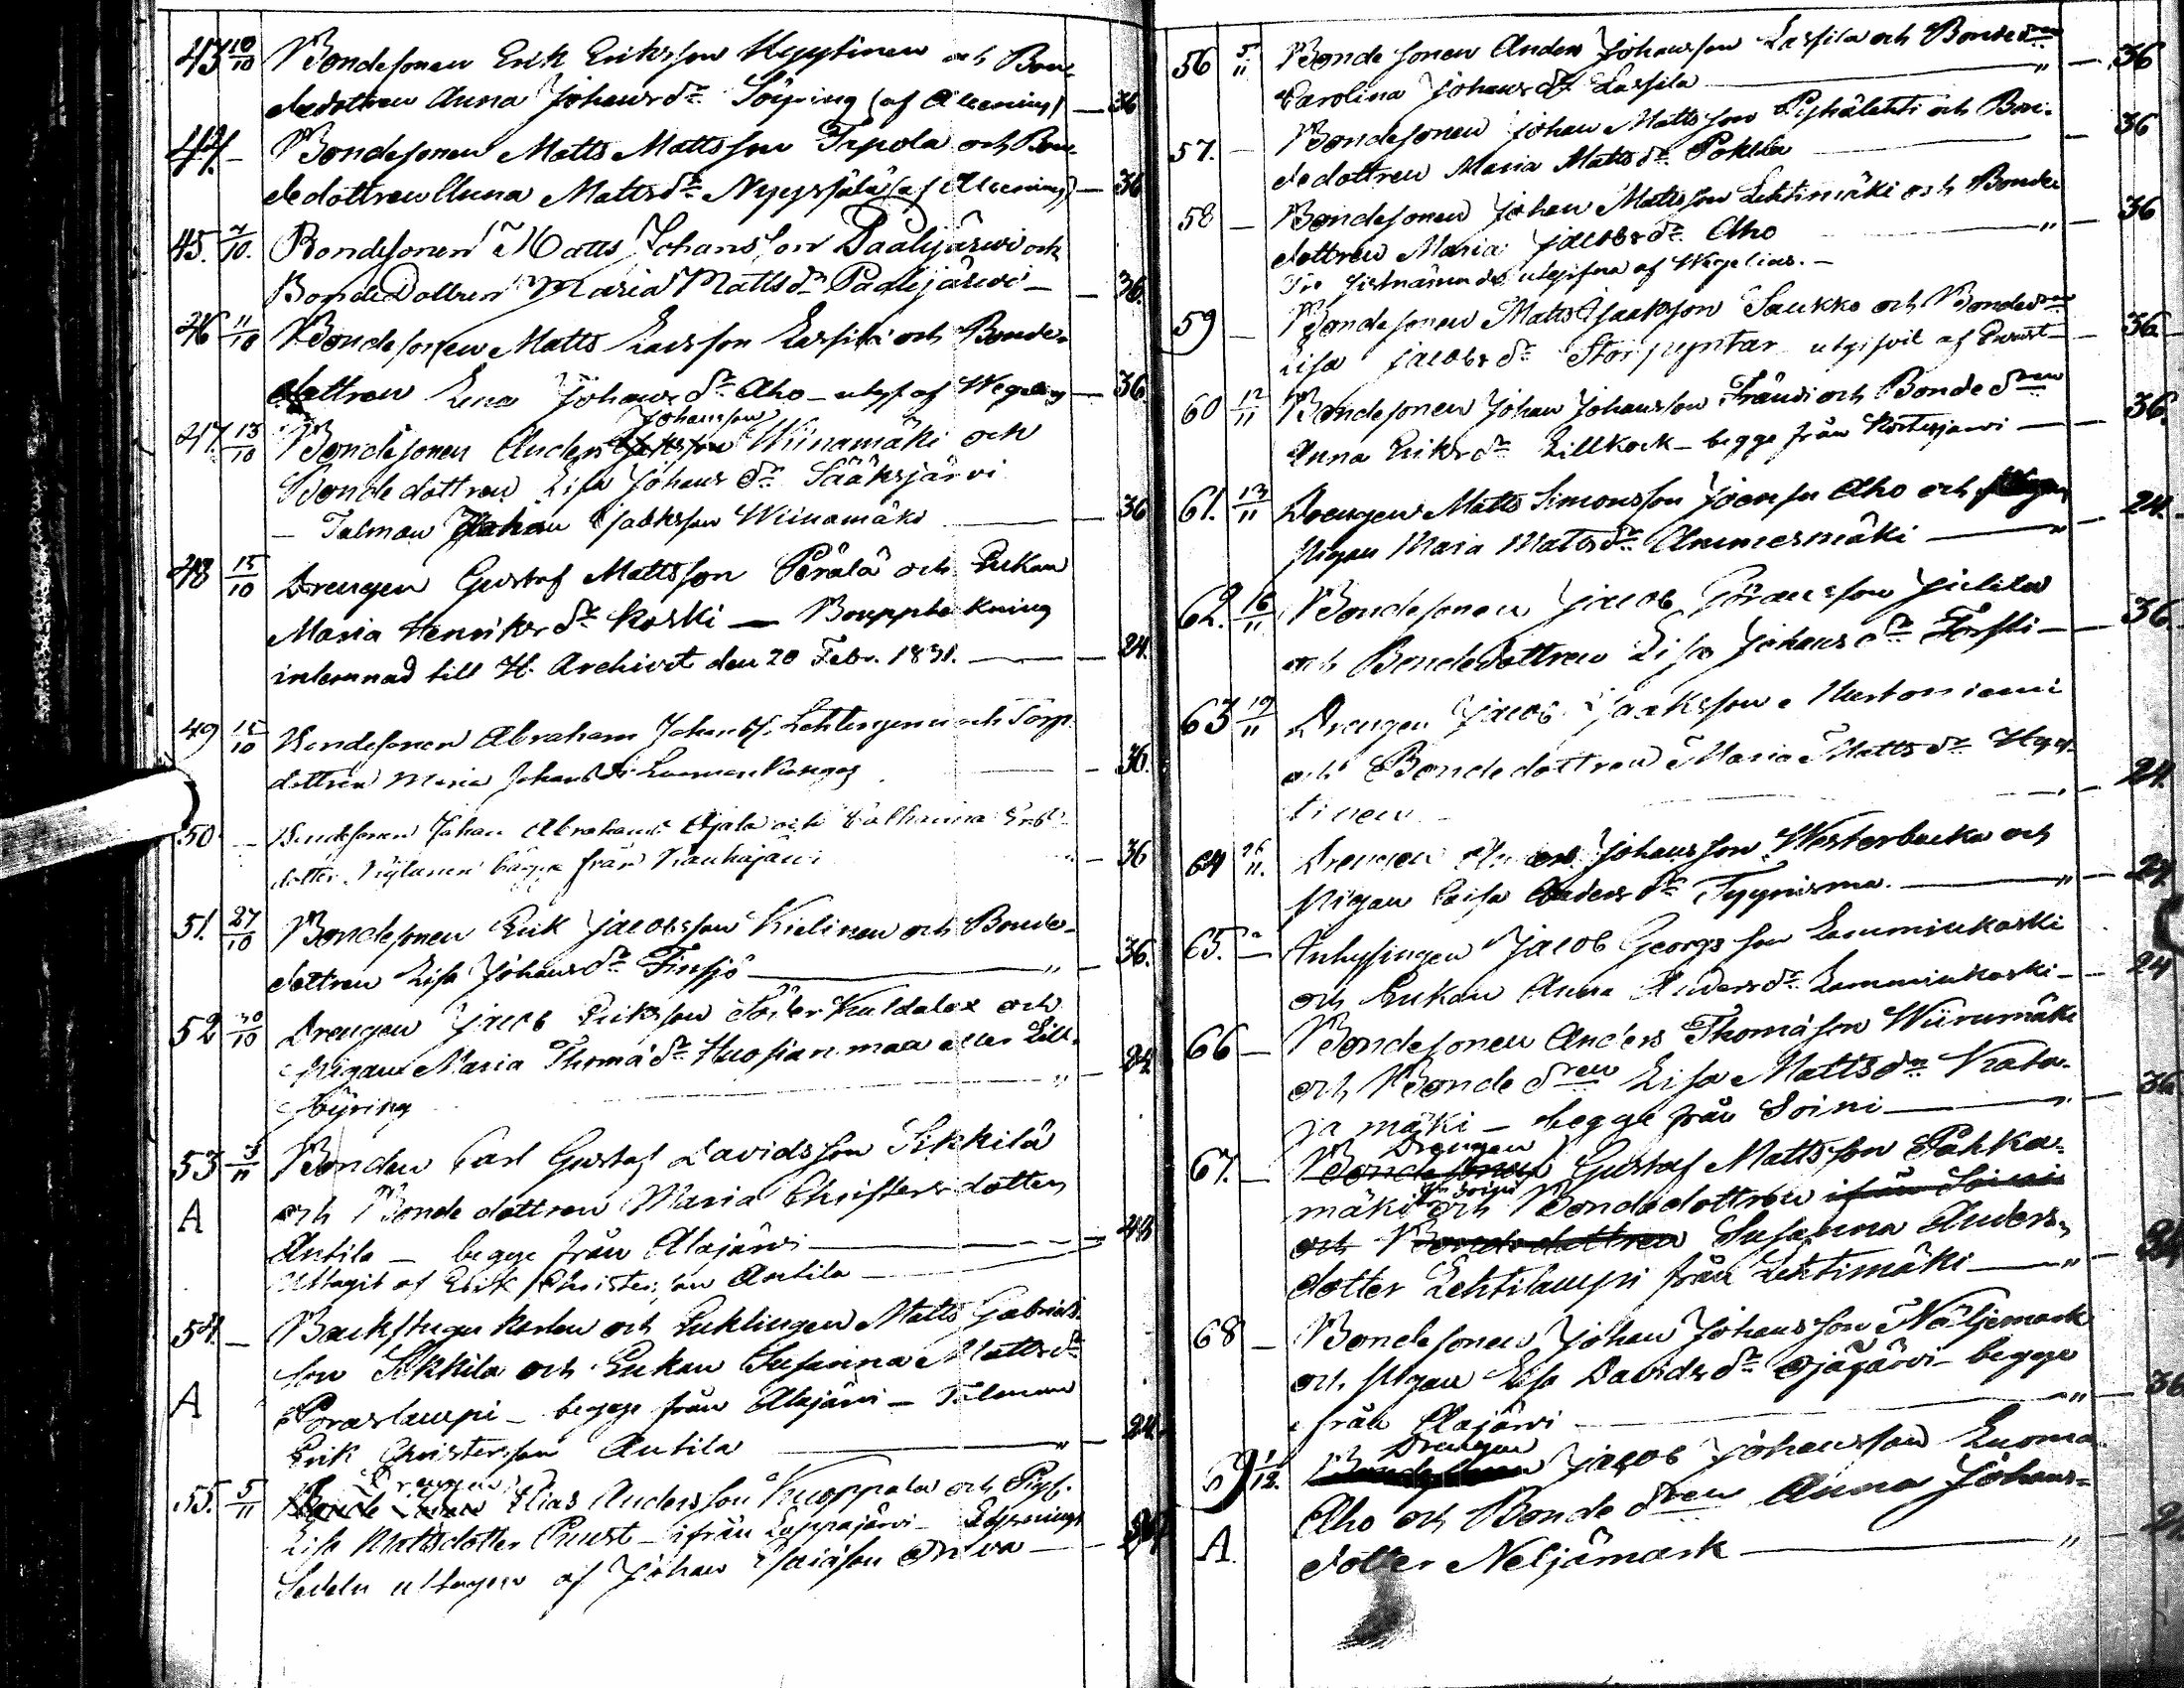 43 10/10 Bondesonen Erik Eriksson Kyytinen och Bon-
dedottren Anna Johansdr Söyring (af Alleening) — 36
44. — Bondesonen Matts Mattsson Tepola och Bon-
dedottren Anna Mattsdr (af Alleening) — 36
45. /10. Bondesonen Matts Johansson Paalijärwi och
BondeDottren Maria Mattsdr Paalijärwi — 36.
46 11/10 Bondesonen Matts Larsson Lassila och Bonde-
dottren Lena Johansdr Aho — utgf af — 36
Johansson
47. 13/10 Bondesonen Anders Wiinamäki och
Bondedottren Lisa Johansdr Sääksjärvi
— Talman Johan Isaksson Wiinamäki — 36
48 15/10 Drengen Gustaf Mattsson Perälä och Enkan
Maria Henriksdr Koski — Bouppteckning
inlemnad till K. Archivet den 20 Febr. 1831. — 24.
49 15/10 Bondesonen Abraham Johans. och Torp.
dottren Maria Johansdr — 36.
50 — Bondesonen Johan Abrahams. Ojala och Catharina
dotter Nylanen bägge från Kauhajärvi — 36
51. 27/10 Bondesonen Erik Jacobsson Kielinen och Bonde-
dottren Lisa Johansdr Finsjö — " — 36.
52 30/10 Drengen Jacob Eriksson Söder Kuldalax och
Pigan Maria Thomædr eller Lill-
Söyring — " — 24
53 3/11 Bonden Carl Gustaf Davidsson Sikkilä
A och Bondedottren Maria Christersdotter
Antila — begge från Alajärvi — 48
Uttagit af Erik Christersson Antila —
54. — Backstugu karlen och Enklingen Matts Gabriels-
son Sikkila och Enkan Susanna Mattsdr
A Poraslampi — begge från Alajärvi — Talman
Erik Christersson Antila — " — 24.
Drengen
55. 5/11 Bonde sonen Elias Andersson Kuoppala och Pig.
Lisa Mattsdotter Puust — ifrån Lappajärvi — Lysnings
Sedeln uttagen af Johan —
56 5/11 Bonde sonen Anders Johansson Lassila och Bondedren
Carolina Johansdr Lassila — " — 36
57. — Bondesonen Johan Mattsson Pyhälahti och Bon-
dedottren Maria Mattsdr Pokela — 36
58 — Bondesonen Johan Mattsson Lehtimäki och Bonde
dottren Maria Jacobsdr Aho — " — 36
Tre sistnämnde utgifna af Wegelius. —
59 — Bondesonen Matts Isaksson Saukko och Bondedren
Lisa Jacobsdr Storpyntar — 36
60 12/11 Bondesonen Johan Johansson Frändi och Bondedren
Anna Eriksdr Lillkock — begge från Kortesjärvi — 36.
61. 13/11 Drengen Matts Simonsson Aho och
Pigan Maria Mattsdr Ammesmäki — " — 24.
62. 16/11 Bondesonen Jacob Göransson Jylilä
och Bondedottren Lisa Johansdr Forssti — 36
63 19/11 Drengen Jacob Isaksson Kurtoniemi
och Bondedottren Maria Mattsdr Kyy-
tinen — " — 24.
64 26/11. Drengen Anders Johansson Westerbacka och
Pigan Caisa Andersdr Tyynismaa — " — 24
65. — Enklingen Jacob Georgsson Lamminkoski
och Enkan Anna Andersdr Lamminkoski — 24
66 — Bondesonen Anders Thomasson Wiinamäki
och Bondedren Lisa Mattsdr Kata-
ja mäki — begge från Soini — " — 36
Drengen
67. — Bondesonen Gustaf Mattsson Pahka-
fr. Soini
mäki och Bondedottren ifrån Soini
och Bondedottren Susanna Anders-
dotter Lehtilampi från Lehtimäki — " — 24
68 — Bondesonen Johan Johansson Näljemark
och Pigan Lisa Davidsdr Ojajärvi — begge
från Alajärvi — " — 36
Drengen
69 1/12. Bondesonen Jacob Johansson Luoma
Aho och Bondedren Anna Johans-
A. dotter Neljämark — " — 24